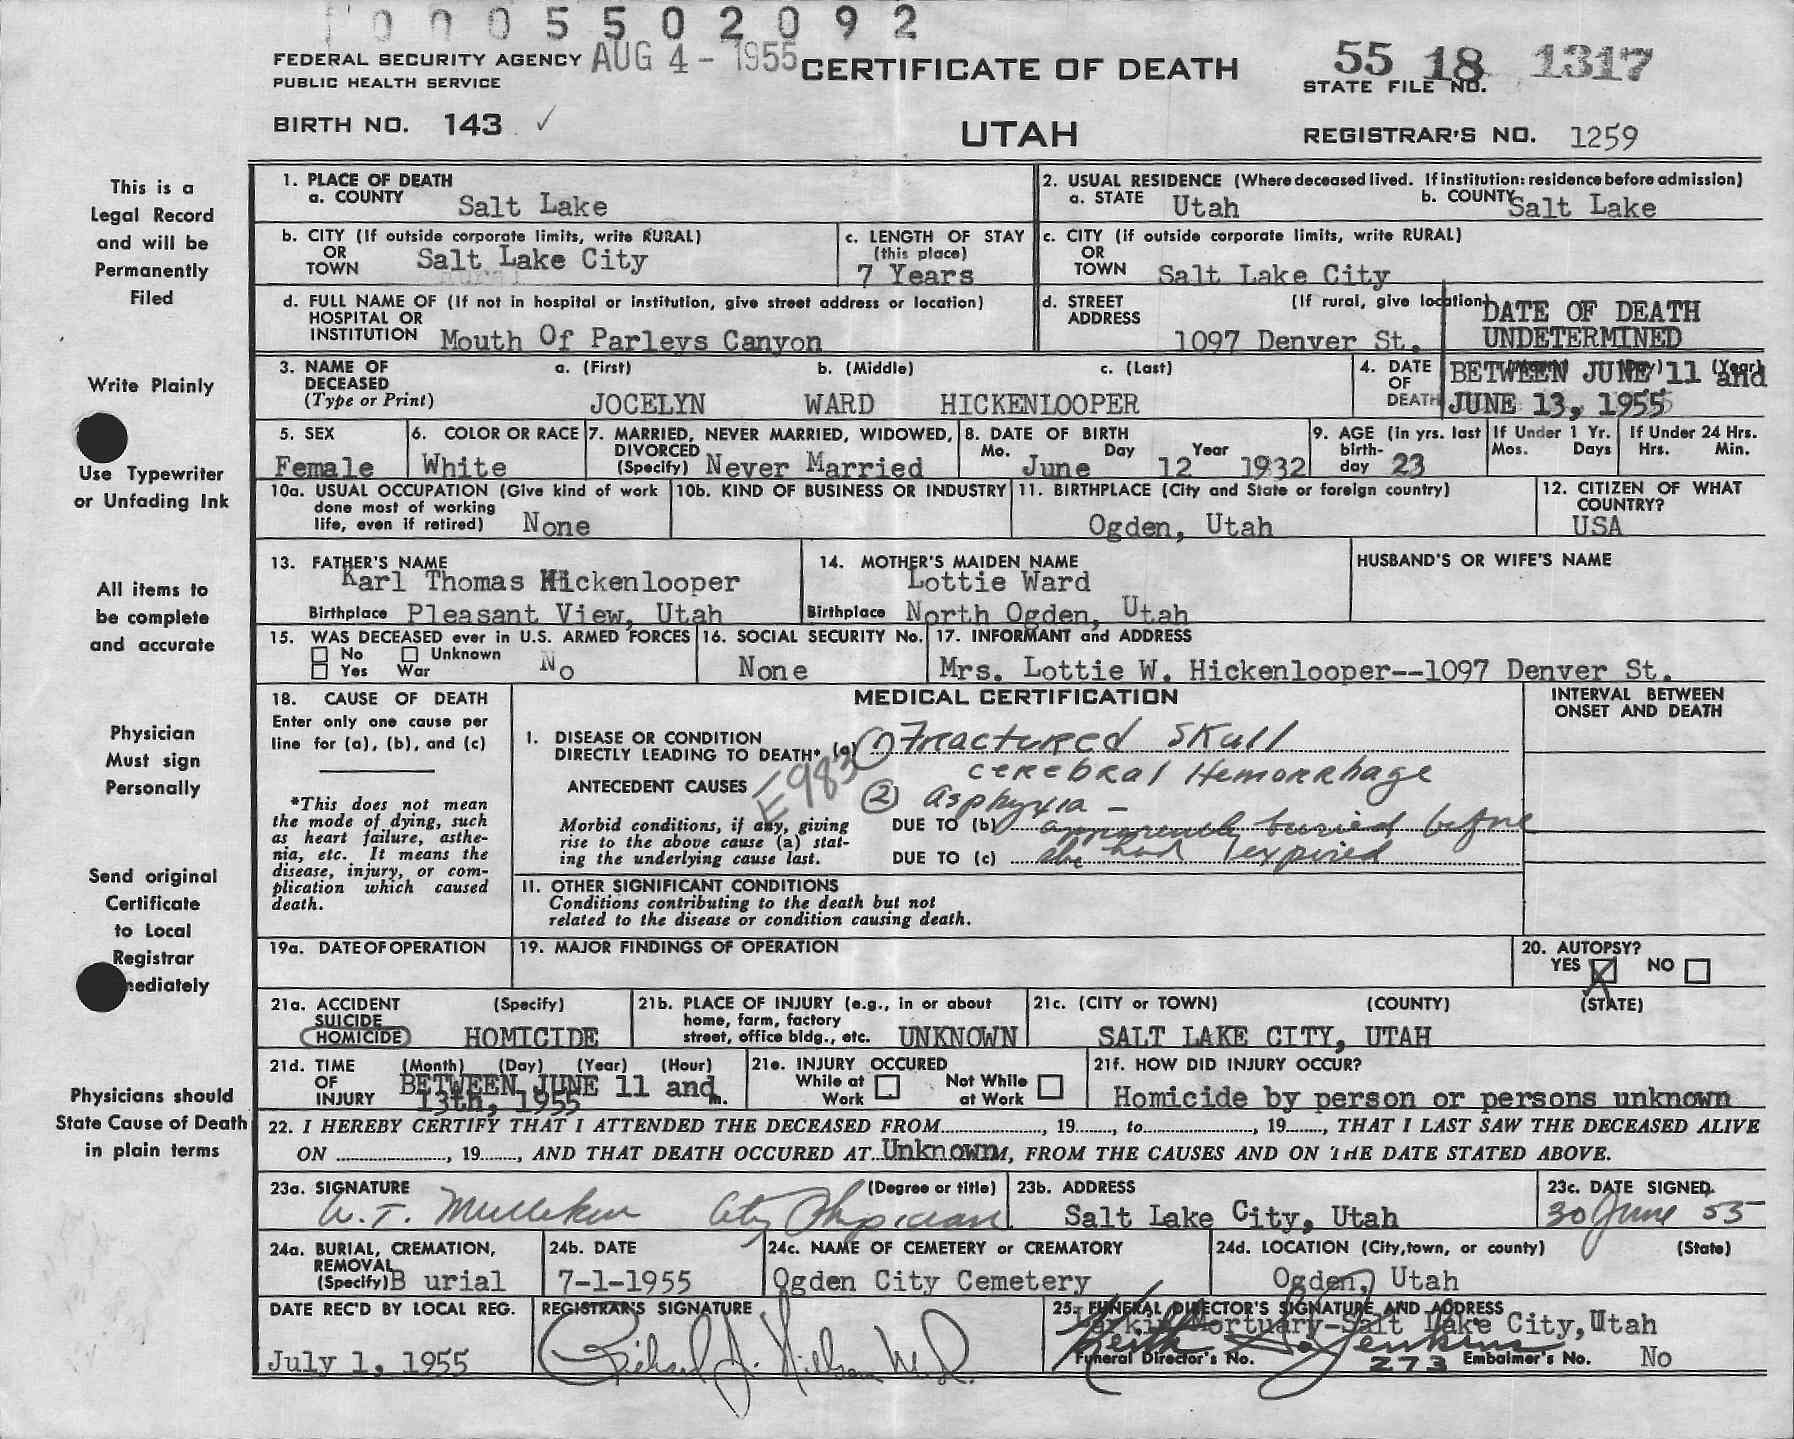 0005502092
FEDERAL SECURITY AGENCY AUG 4 - 1955 CERTIFICATE OF DEATH 55 18 1317
PUBLIC HEALTH SERVICE STATE FILE NO.
BIRTH NO. 143 ✓ UTAH REGISTRAR'S NO. 1259
This is a
Legal Record
and will be
Permanently
Filed
Write Plainly
Use Typewriter
or Unfading Ink
All items to
be complete
and accurate
Physician
Must sign
Personally
Send original
Certificate
to Local
Registrar
mediately
Physicians should
State Cause of Death
in plain terms
1. PLACE OF DEATH
a. COUNTY Salt Lake
2. USUAL RESIDENCE (Where deceased lived. If institution: residence before admission)
a. STATE Utah b. COUNTY Salt Lake
b. CITY (If outside corporate limits, write RURAL)
OR
TOWN Salt Lake City
c. LENGTH OF STAY
(this place)
7 Years
c. CITY (if outside corporate limits, write RURAL)
OR
TOWN Salt Lake City
d. FULL NAME OF (If not in hospital or institution, give street address or location)
HOSPITAL OR
INSTITUTION Mouth Of Parleys Canyon
d. STREET (If rural, give location)
ADDRESS
1097 Denver St.
DATE OF DEATH
UNDETERMINED
3. NAME OF a. (First) b. (Middle) c. (Last)
DECEASED
(Type or Print) JOCELYN WARD HICKENLOOPER
4. DATE
OF
DEATH
BETWEEN JUNE 11 and
JUNE 13, 1955
5. SEX
Female
6. COLOR OR RACE
White
7. MARRIED, NEVER MARRIED, WIDOWED,
DIVORCED
(Specify) Never Married
8. DATE OF BIRTH
Mo. Day Year
June 12 1932
9. AGE (in yrs. last
birth-
day 23
If Under 1 Yr.
Mos. Days
If Under 24 Hrs.
Hrs. Min.
10a. USUAL OCCUPATION (Give kind of work
done most of working
life, even if retired) None
10b. KIND OF BUSINESS OR INDUSTRY
11. BIRTHPLACE (City and State or foreign country)
Ogden, Utah
12. CITIZEN OF WHAT
COUNTRY?
USA
13. FATHER'S NAME
Karl Thomas Hickenlooper
Birthplace Pleasant View, Utah
14. MOTHER'S MAIDEN NAME
Lottie Ward
Birthplace North Ogden, Utah
HUSBAND'S OR WIFE'S NAME
15. WAS DECEASED ever in U.S. ARMED FORCES
No Unknown
Yes War No
16. SOCIAL SECURITY No.
None
17. INFORMANT and ADDRESS
Mrs. Lottie W. Hickenlooper--1097 Denver St.
18. CAUSE OF DEATH
Enter only one cause per
line for (a), (b), and (c)
*This does not mean
the mode of dying, such
as heart failure, asthe-
nia, etc. It means the
disease, injury, or com-
plication which caused
death.
MEDICAL CERTIFICATION
INTERVAL BETWEEN
ONSET AND DEATH
I. DISEASE OR CONDITION
DIRECTLY LEADING TO DEATH* (a) (1) Fractured Skull
cerebral Hemorrhage
ANTECEDENT CAUSES E983 (2) Asphyxia -
Morbid conditions, if any, giving
rise to the above cause (a) stat-
ing the underlying cause last.
DUE TO (b) apparently buried before
DUE TO (c) she had expired
II. OTHER SIGNIFICANT CONDITIONS
Conditions contributing to the death but not
related to the disease or condition causing death.
19a. DATE OF OPERATION
19. MAJOR FINDINGS OF OPERATION
20. AUTOPSY?
YES X NO
21a. ACCIDENT (Specify)
SUICIDE
HOMICIDE HOMICIDE
21b. PLACE OF INJURY (e.g., in or about
home, farm, factory
street, office bldg., etc. UNKNOWN
21c. (CITY or TOWN) (COUNTY) (STATE)
SALT LAKE CITY, UTAH
21d. TIME (Month) (Day) (Year) (Hour)
OF
INJURY BETWEEN JUNE 11 and m.
13th, 1955
21e. INJURY OCCURED
While at Not While
Work at Work
21f. HOW DID INJURY OCCUR?
Homicide by person or persons unknown
22. I HEREBY CERTIFY THAT I ATTENDED THE DECEASED FROM, 19, to, 19, THAT I LAST SAW THE DECEASED ALIVE
ON, 19, AND THAT DEATH OCCURED AT Unknown M, FROM THE CAUSES AND ON THE DATE STATED ABOVE.
23a. SIGNATURE (Degree or title)
W. T. Mulliken City Physician
23b. ADDRESS
Salt Lake City, Utah
23c. DATE SIGNED
30 June 55
24a. BURIAL, CREMATION,
REMOVAL
(Specify) B urial
24b. DATE
7-1-1955
24c. NAME OF CEMETERY or CREMATORY
Ogden City Cemetery
24d. LOCATION (City, town, or county) (State)
Ogden, Utah
DATE REC'D BY LOCAL REG.
July 1, 1955
REGISTRAR'S SIGNATURE
Richard J. Nielson M.D.
25. FUNERAL DIRECTOR'S SIGNATURE AND ADDRESS
Larkin Mortuary-Salt Lake City, Utah
Keith S. Jenkins
Funeral Director's No. 273 Embalmer's No. No